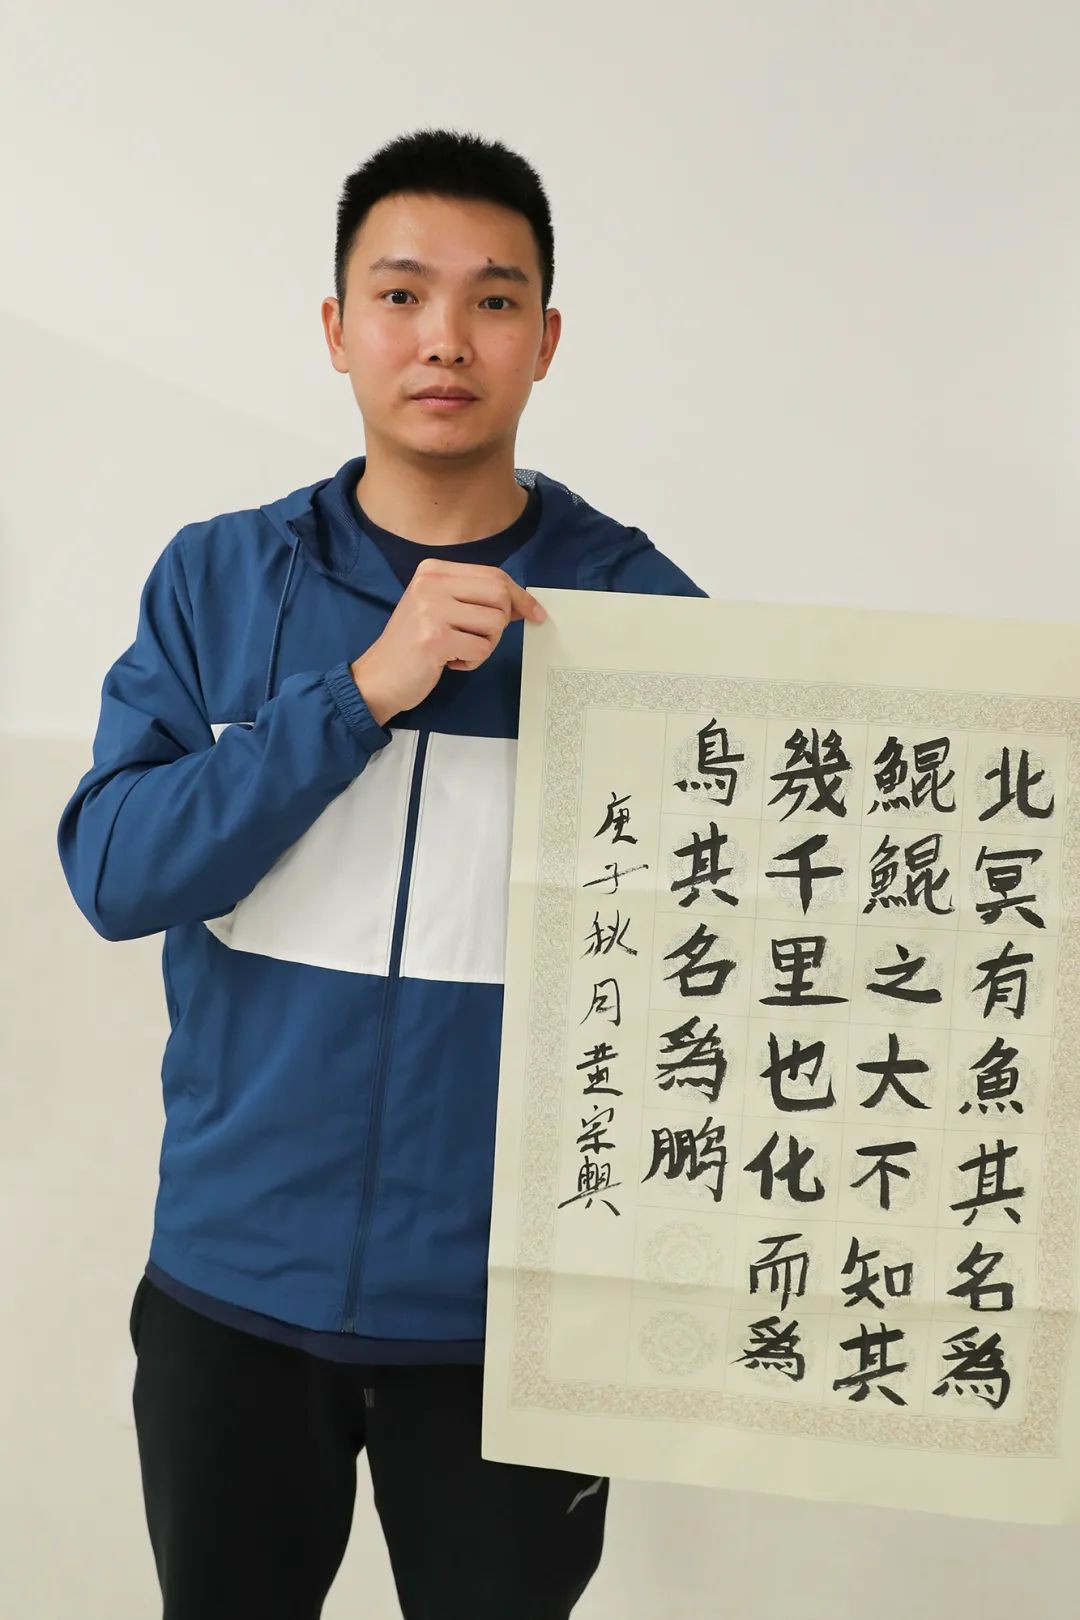 北冥有魚其名為
鯤鯤之大不知其
幾千里也化而為
鳥其名為鹏
庚子秋月黄宗興